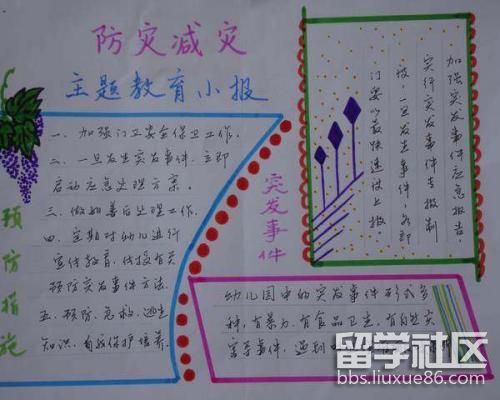 防灾减灾
主题教育小报
一、加强门卫安全保卫工作.
二、一旦发生突发事件,立即
启动应急处理方案.
三、做好善后处理工作.
四、定期对幼儿进行
宣传教育,传授有关
预防突发事件方法.
五、预防、急救、逃生
知识、自我保护培养.
预防措施
突发事件
加强突发事件应急报告,
实行突发事件专报制
度,一旦发生事件,各部
门要以最快速度上报.
幼儿园中的突发事件形式多
种,有暴力、有食品卫生、有自然灾
害等事件.遇到
留学社区
bbs.liuxue86.com